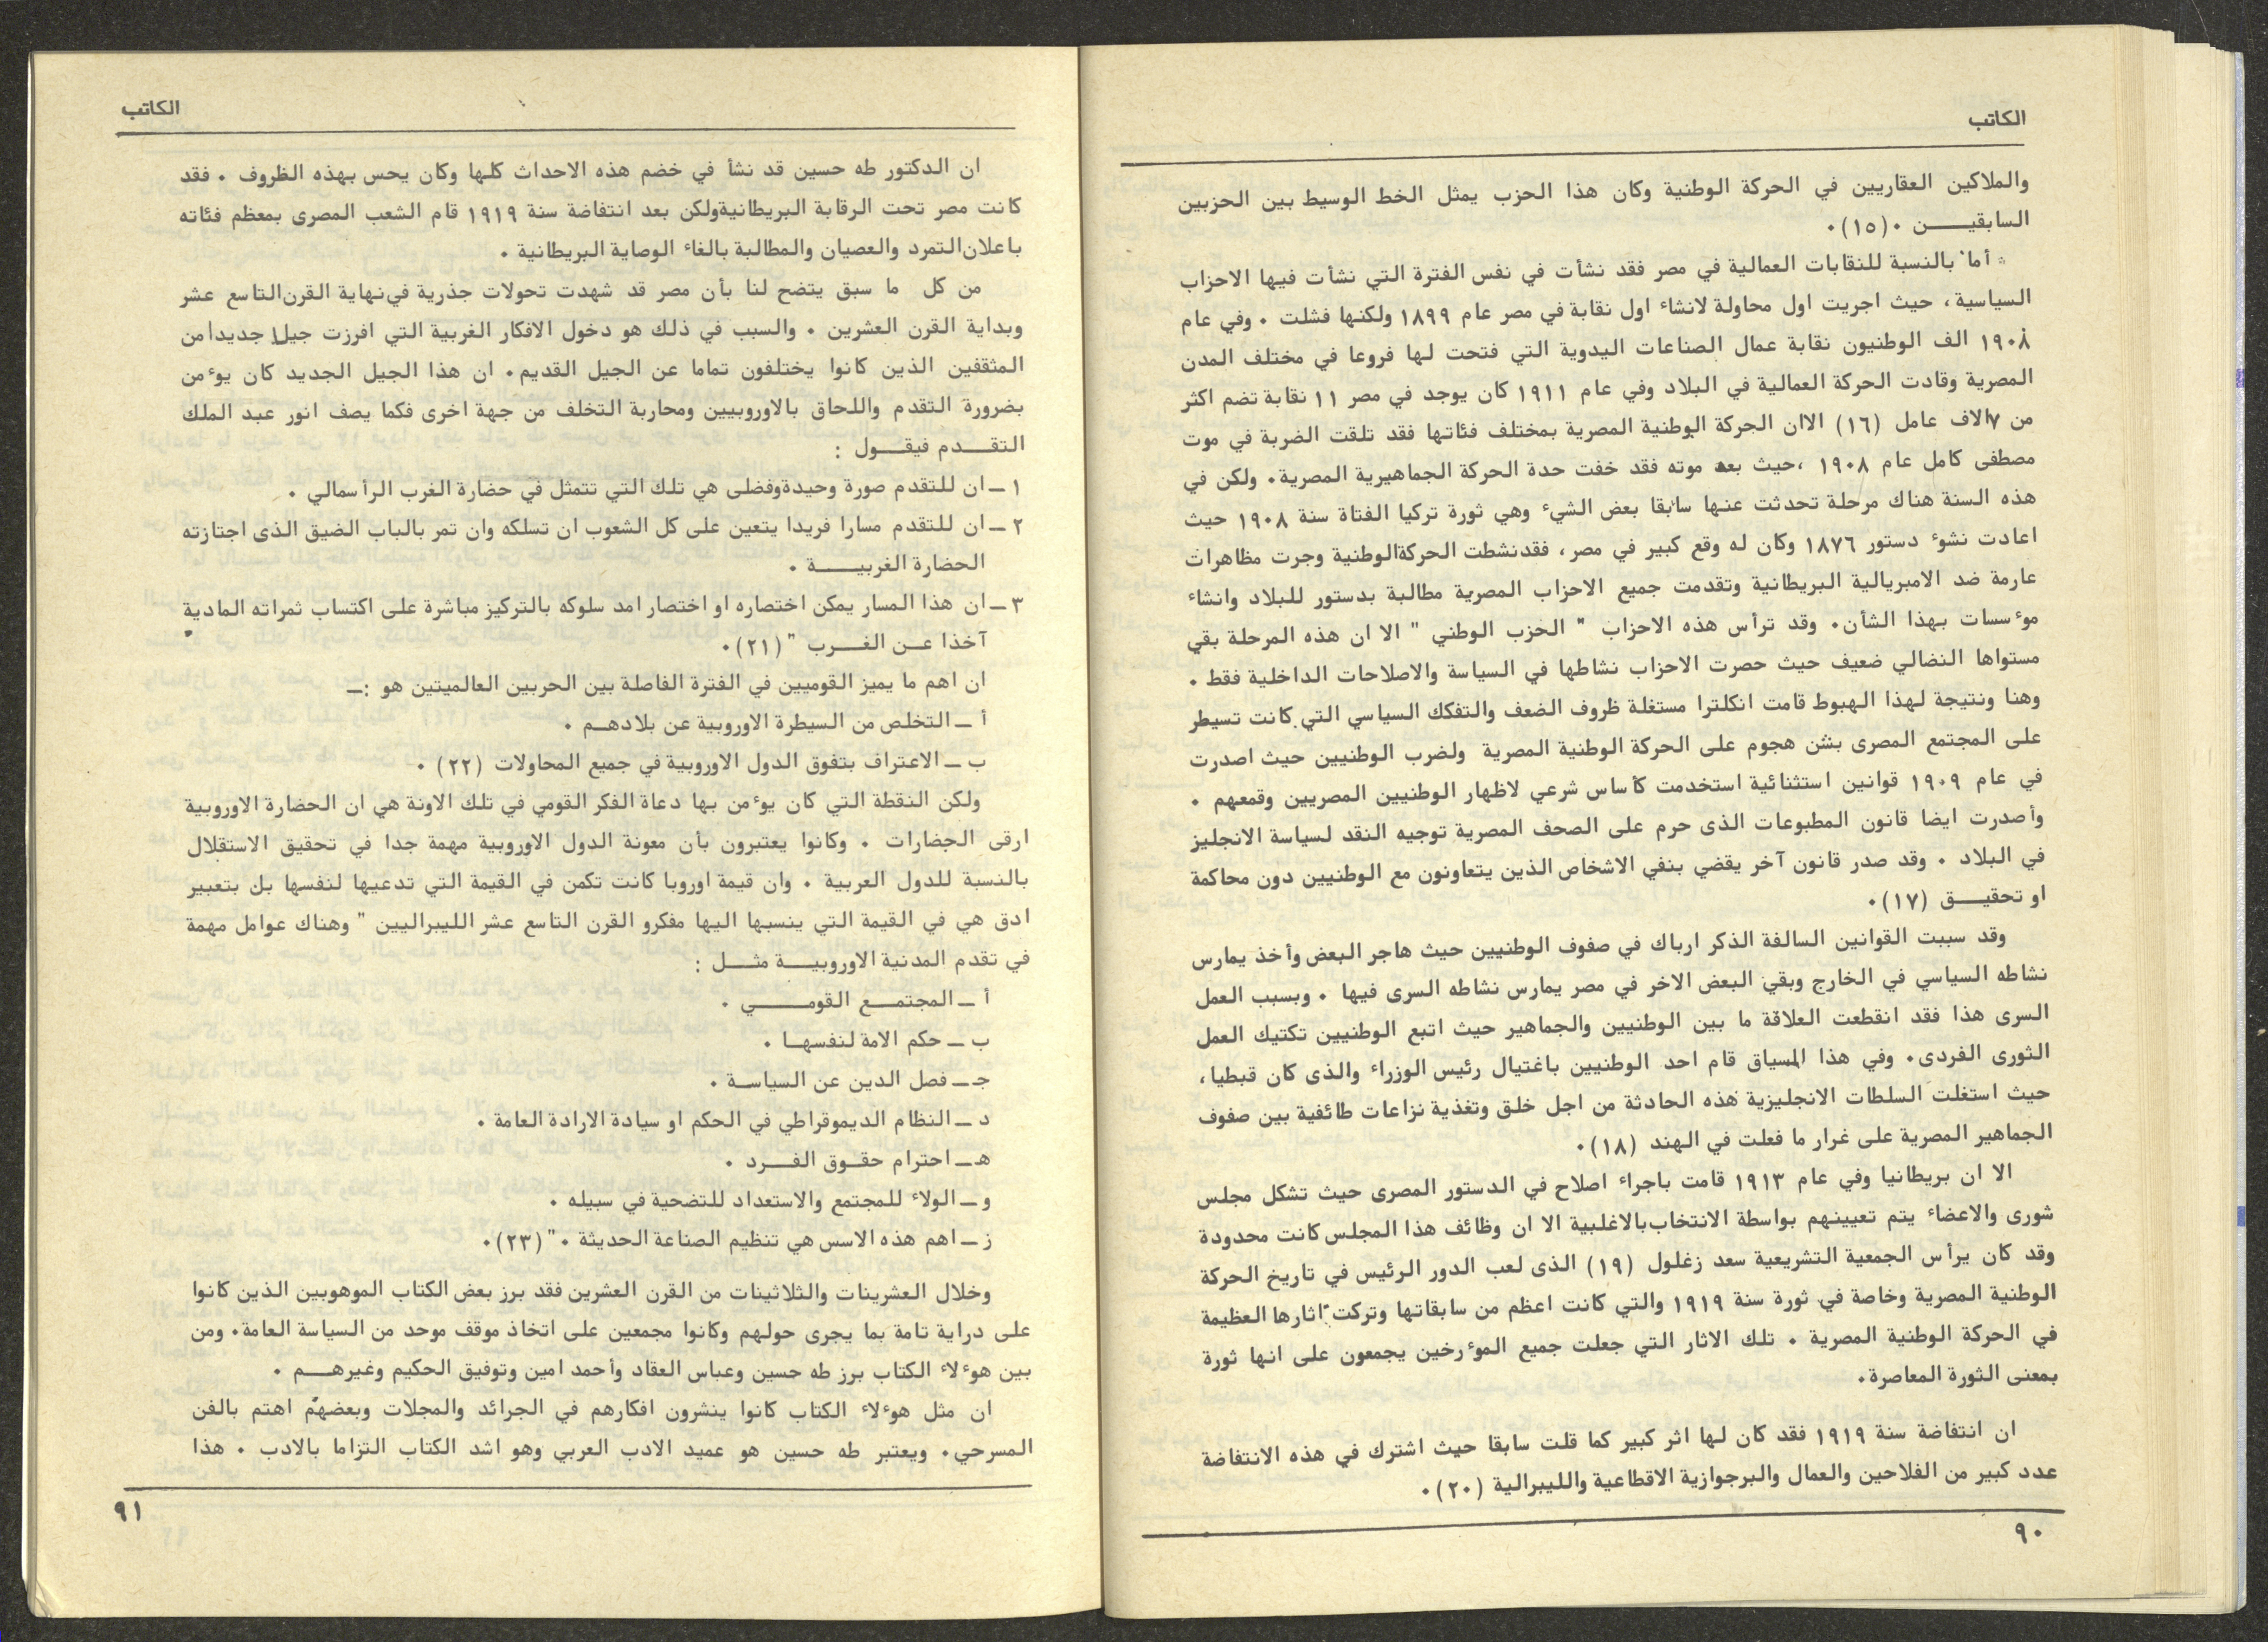 الكاتب
والملاكين العقاريين في الحركة الوطنية وكان هذا الحزب يمثل الخط الوسيط بين الحزبين
السابقيــــن ٠(١٥)٠
* أما بالنسبة للنقابات العمالية في مصر فقد نشأت في نفس الفترة التي نشأت فيها الاحزاب
السياسية، حيث اجريت اول محاولة لانشاء اول نقابة في مصر عام ١٨٩٩ ولكنها فشلت ٠ وفي عام
١٩٠٨ الف الوطنيون نقابة عمال الصناعات اليدوية التي فتحت لها فروعا في مختلف المدن
المصرية وقادت الحركة العمالية في البلاد وفي عام ١٩١١ كان يوجد في مصر ١١ نقابة تضم اكثر
من ٧الاف عامل (١٦) الاان الحركة الوطنية المصرية بمختلف فئاتها فقد تلقت الضربة في موت
مصطفى كامل عام ١٩٠٨ ،حيث بعد موته فقد خفت حدة الحركة الجماهيرية المصرية٠ ولكن في
هذه السنة هناك مرحلة تحدثت عنها سابقا بعض الشيء وهي ثورة تركيا الفتاة سنة ١٩٠٨ حيث
اعادت نشوء دستور ١٨٧٦ وكان له وقع كبير في مصر، فقدنشطت الحركةالوطنية وجرت مظاهرات
عارمة ضد الامبريالية البريطانية وتقدمت جميع الاحزاب المصرية مطالبة بدستور للبلاد وانشاء
مؤسسات بهذا الشأن٠ وقد ترأس هذه الاحزاب " الحزب الوطني " الا ان هذه المرحلة بقي
مستواها النضالي ضعيف حيث حصرت الاحزاب نشاطها في السياسة والاصلاحات الداخلية فقط ٠
وهنا ونتيجة لهذا الهبوط قامت انكلترا مستغلة ظروف الضعف والتفكك السياسي التي كانت تسيطر
على المجتمع المصرى بشن هجوم على الحركة الوطنية المصرية ولضرب الوطنيين حيث اصدرت
في عام ١٩٠٩ قوانين استثنائية استخدمت كأساس شرعي لاظهار الوطنيين المصريين وقمعهم ٠
وأصدرت ايضا قانون المطبوعات الذى حرم على الصحف المصرية توجيه النقد لسياسة الانجليز
في البلاد ٠ وقد صدر قانون آخر يقضي بنفي الاشخاص الذين يتعاونون مع الوطنيين دون محاكمة
او تحقيــــق (١٧)٠
وقد سببت القوانين السالفة الذكر ارباك في صفوف الوطنيين حيث هاجر البعض وأخذ يمارس
نشاطه السياسي في الخارج وبقي البعض الاخر في مصر يمارس نشاطه السرى فيها ٠ وبسبب العمل
السرى هذا فقد انقطعت العلاقة ما بين الوطنيين والجماهير حيث اتبع الوطنيين تكتيك العمل
الثورى الفردى٠ وفي هذا المسياق قام احد الوطنيين باغتيال رئيس الوزراء والذى كان قبطيا،
حيث استغلت السلطات الانجليزية هذه الحادثة من اجل خلق وتغذية نزاعات طائفية بين صفوف
الجماهير المصرية على غرار ما فعلت في الهند (١٨)٠
الا ان بريطانيا وفي عام ١٩١٣ قامت باجراء اصلاح في الدستور المصرى حيث تشكل مجلس
شورى والاعضاء يتم تعيينهم بواسطة الانتخاب‌بالاغلبية الا ان وظائف هذا المجلس كانت محدودة
وقد كان يرأس الجمعية التشريعية سعد زغلول (١٩) الذى لعب الدور الرئيس في تاريخ الحركة
الوطنية المصرية وخاصة في ثورة سنة ١٩١٩ والتي كانت اعظم من سابقاتها وتركت آثارها العظيمة
في الحركة الوطنية المصرية ٠ تلك الاثار التي جعلت جميع المؤرخين يجمعون على انها ثورة
بمعنى الثورة المعاصرة٠
ان انتفاضة سنة ١٩١٩ فقد كان لها اثر كبير كما قلت سابقا حيث اشترك في هذه الانتفاضة
عدد كبير من الفلاحين والعمال والبرجوازية الاقطاعية والليبرالية (٢٠)٠
٩٠
الكاتب
ان الدكتور طه حسين قد نشأ في خضم هذه الاحداث كلها وكان يحس بهذه الظروف ٠ فقد
كانت مصر تحت الرقابة البريطانيةولكن بعد انتفاضة سنة ١٩١٩ قام الشعب المصرى بمعظم فئاته
باعلان‌التمرد والعصيان والمطالبة بالغاء الوصاية البريطانية ٠
من كل ما سبق يتضح لنا بأن مصر قد شهدت تحولات جذرية في‌نهاية القرن‌التاسع عشر
وبداية القرن العشرين ٠ والسبب في ذلك هو دخول الافكار الغربية التي افرزت جيلا جديدامن
المثقفين الذين كانوا يختلفون تماما عن الجيل القديم٠ ان هذا الجيل الجديد كان يؤمن
بضرورة التقدم واللحاق بالاوروبيين ومحاربة التخلف من جهة اخرى فكما يصف انور عبد الملك
التقــــدم فيقــــول :
١ ــ ان للتقدم صورة وحيدةوفضلى هي تلك التي تتمثل في حضارة الغرب الرأسمالي ٠
٢ ــ ان للتقدم مسارا فريدا يتعين على كل الشعوب ان تسلكه وان تمر بالباب الضيق الذى اجتازته
الحضارة الغربيــــــة ٠
٣ ــ ان هذا المسار يمكن اختصاره او اختصار امد سلوكه بالتركيز مباشرة على اكتساب ثمراته المادية
آخذا عــن الغــــرب " (٢١)٠
ان اهم ما يميز القوميين في الفترة الفاصلة بين الحربين العالميتين هو :ــ
أ ــ التخلص من السيطرة الاوروبية عن بلادهــم ٠
ب ــ الاعتراف بتفوق الدول الاوروبية في جميع المحاولات (٢٢) ٠
ولكن النقطة التي كان يؤمن بها دعاة الفكر القومي في تلك الاونة هي ان الحضارة الاوروبية
ارقى الحضارات ٠ وكانوا يعتبرون بأن معونة الدول الاوروبية مهمة جدا في تحقيق الاستقلال
بالنسبة للدول العربية ٠ وان قيمة اوروبا كانت تكمن في القيمة التي تدعيها لنفسها بل بتعبير
ادق هي في القيمة التي ينسبها اليها مفكرو القرن التاسع عشر الليبراليين " وهناك عوامل مهمة
في تقدم المدنية الاوروبيــــة مثــــل :
أ ــ المجتمــــع القومــــــي ٠
ب ــ حكم الامة لنفسهــا ٠
جـ ــ فصل الدين عن السياســة ٠
د ــ النظام الديموقراطي في الحكم او سيادة الارادة العامة ٠
هـ ــ احترام حقــوق الفــــرد ٠
و ــ الولاء للمجتمع والاستعداد للتضحية في سبيله ٠
ز ــ اهم هذه الاسس هي تنظيم الصناعة الحديثة ٠" (٢٣)٠
وخلال العشرينات والثلاثينات من القرن العشرين فقد برز بعض الكتاب الموهوبين الذين كانوا
على دراية تامة بما يجرى حولهم وكانوا مجمعين على اتخاذ موقف موحد من السياسة العامة٠ ومن
بين هؤلاء الكتاب برز طه حسين وعباس العقاد وأحمد امين وتوفيق الحكيم وغيرهــــم ٠
ان مثل هؤلاء الكتاب كانوا ينشرون افكارهم في الجرائد والمجلات وبعضهم اهتم بالفن
المسرحي٠ ويعتبر طه حسين هو عميد الادب العربي وهو اشد الكتاب التزاما بالادب ٠ هذا
٩١